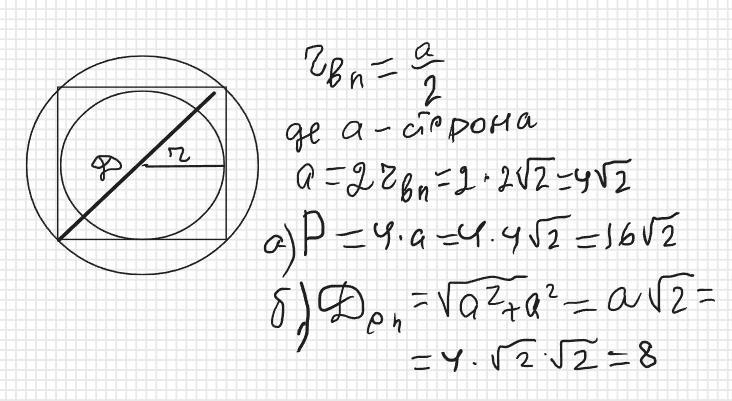 D r
r вп = a/2
де а - сторона
a = 2 r вп = 2 · 2√2 = 4√2
а) P = 4 · a = 4 · 4√2 = 16√2
б) D оп = √a² + a² = a√2 =
= 4 · √2 · √2 = 8